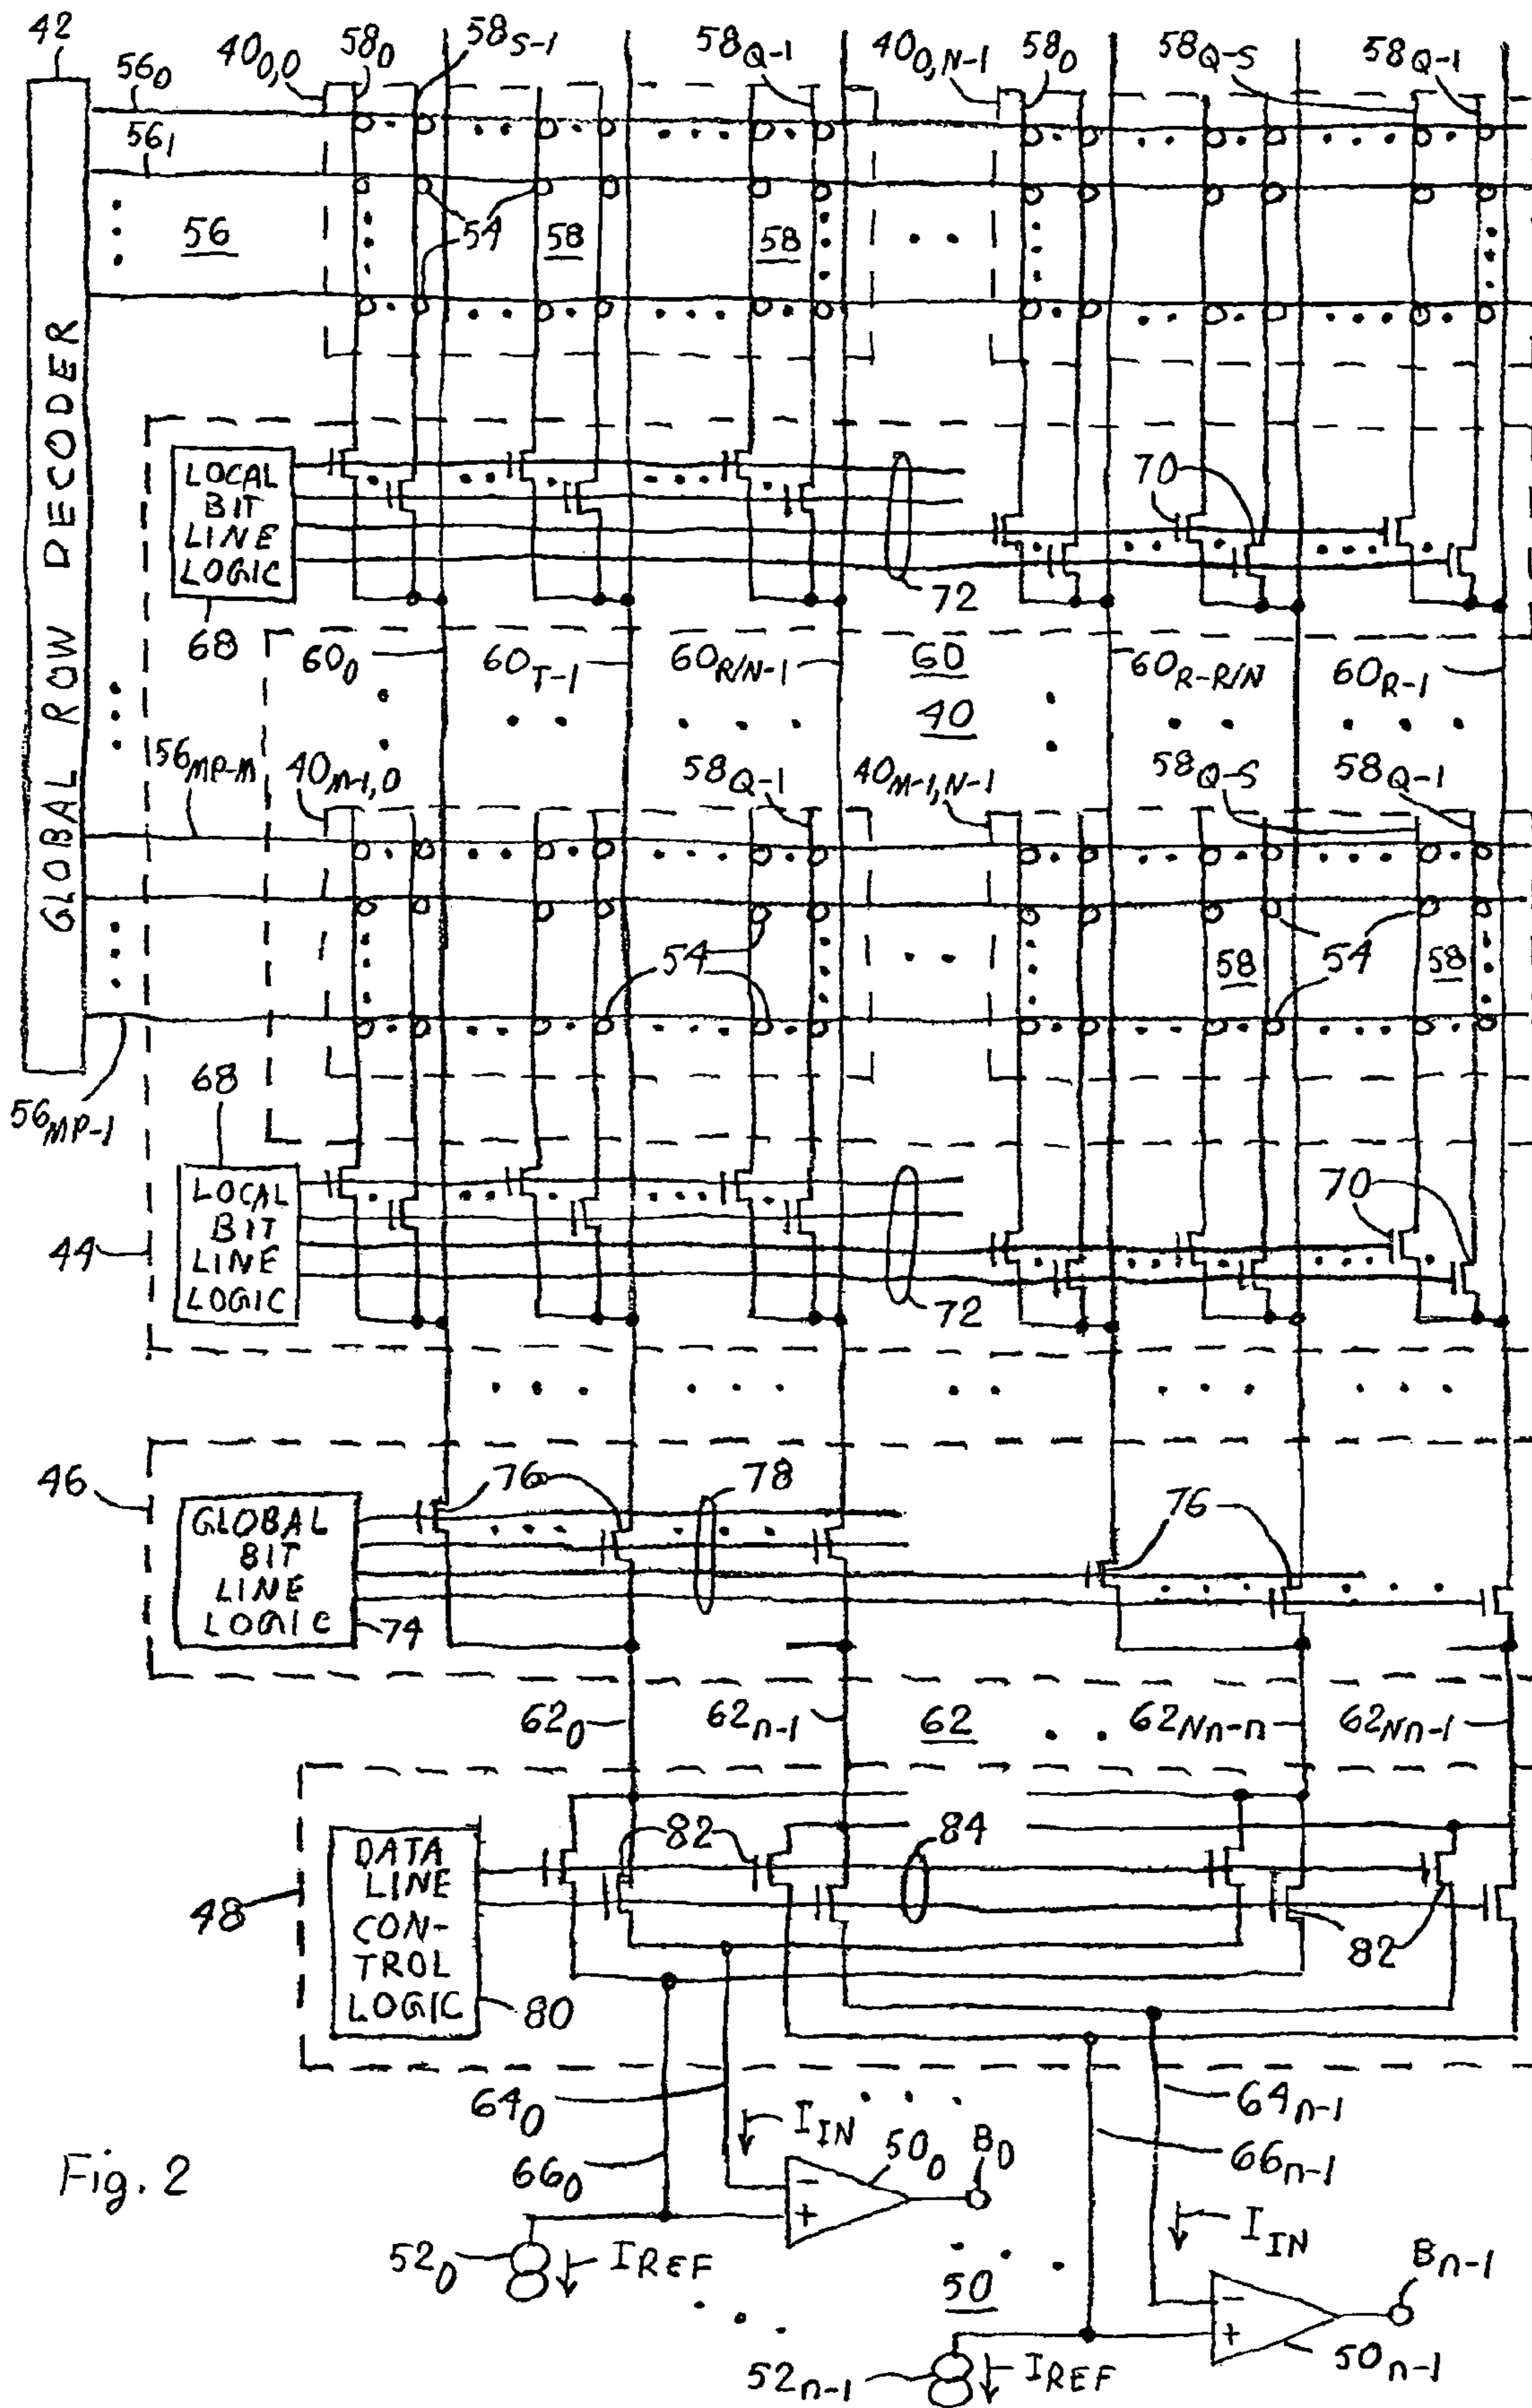 42
56₀
40₀,₀
58₀
58S-1
58Q-1
40₀,N-1
58₀
58Q-S
58Q-1
56₁
56
54
58
58
GLOBAL ROW DECODER
LOCAL
BIT
LINE
LOGIC
68
70
72
60₀
60T-1
60R/N-1
60
60R-R/N
60R-1
40
56MP-M
40M-1,0
58Q-1
40M-1,N-1
58Q-S
58Q-1
54
58
54
58
56MP-1
68
LOCAL
BIT
LINE
LOGIC
44
70
72
46
76
78
76
GLOBAL
BIT
LINE
LOGIC
74
62₀
62n-1
62
62Nn-n
62Nn-1
82
84
DATA
LINE
CON-
TROL
LOGIC
48
80
82
64₀
IIN
50₀
B₀
64n-1
66₀
66n-1
Fig. 2
52₀
IREF
IIN
Bn-1
50
52n-1
IREF
50n-1